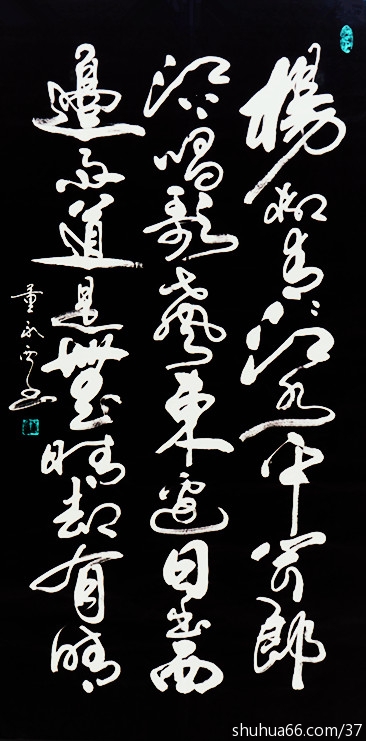 楊柳青々江水平闻郎
江上唱歌聲東邊日出西
邊雨道是無晴却有晴
董永书
shuhua66.com/37